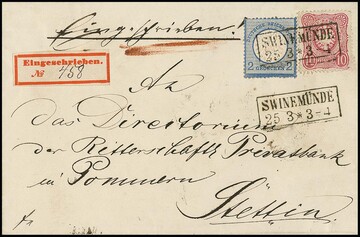 Eingeschrieben!
Eingeschrieben.
№ 158
2 GROSCHEN 2
10 PFENNIGE 10
SWINEMÜNDE
25 3 * 3-4
SWINEMÜNDE
25 3 * 3-4
An
das Directorium
der Ritterschaftl. Privatbank
in Pommern
Stettin